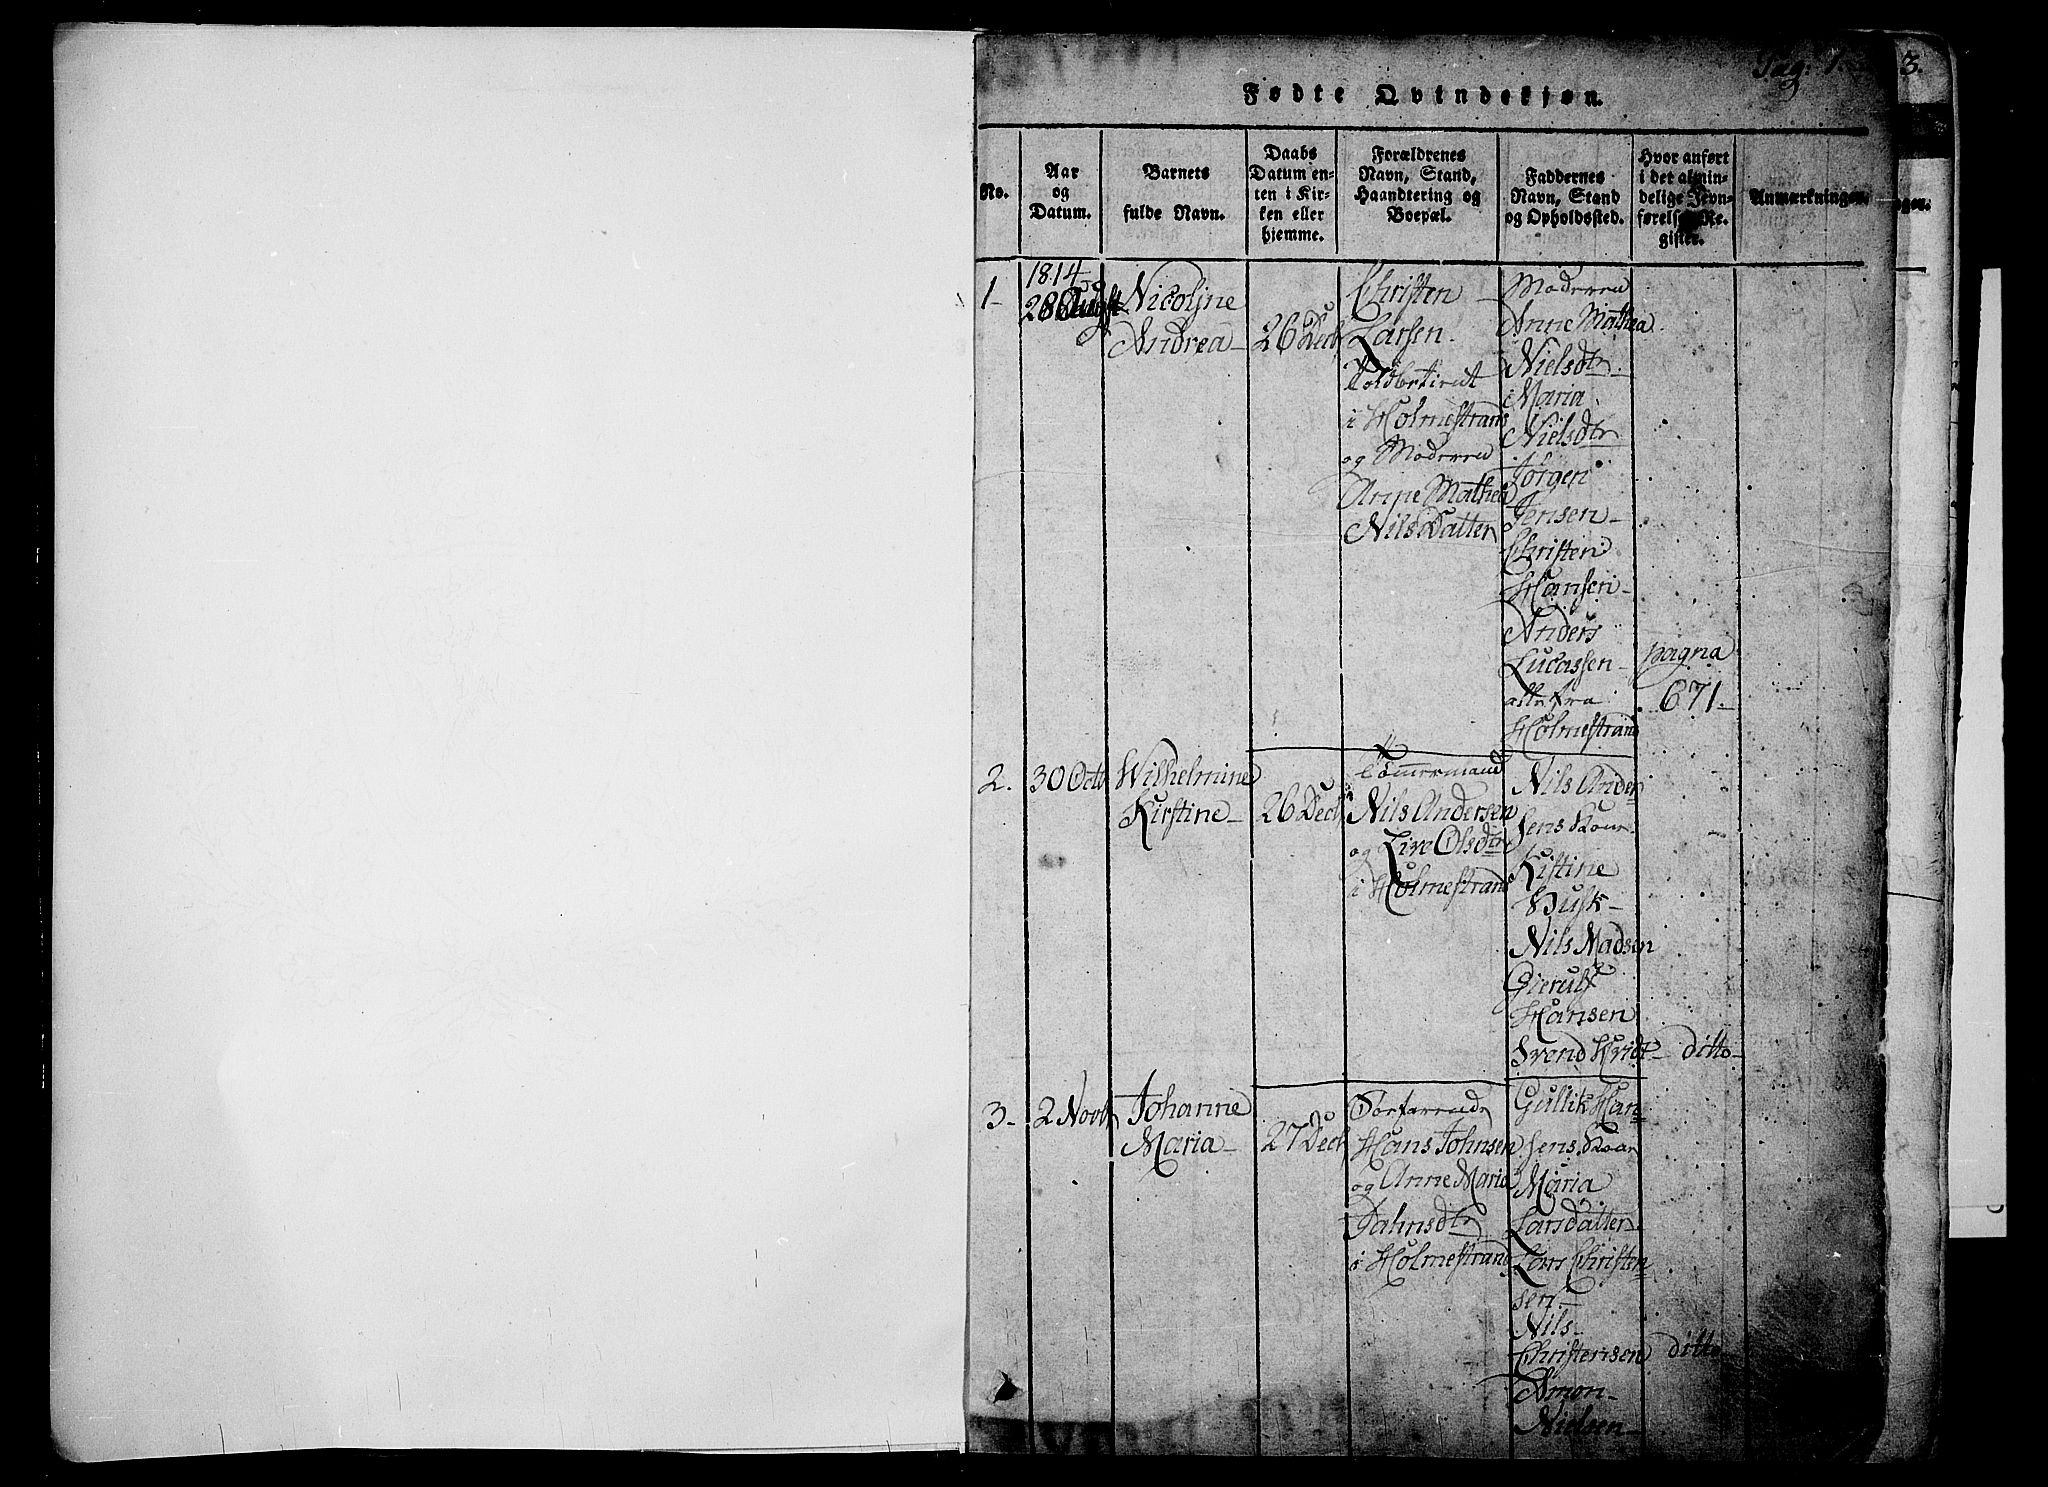 Pag: 1.
3.
Fødte Qvindekjøn.
No.
Aar
og
Datum.
Barnets
fulde Navn.
Daabs
Datum en-
ten i Kir-
ken eller
hjemme.
Forældrenes
Navn, Stand,
Haandtering og
Boepæl.
Faddernes
Navn, Stand
og Opholdssted.
Hvor anført
i det almin-
delige Jevn-
førelses Re-
gister.
Anmærkninger.
1-
1814
28 Augst
Nicoline
Andrea-
26 Decb
Christen
Larsen-
Toldbetient
i Holmestrand
og Moderen
Anne Mathea
Nils Datter
Moderen
Anne Mathea
Nielsdtr
Maria
Nielsdtr
Jørgen
Jensen-
Christen
Hansen-
Anders
Lucassen-
alle fra
Holmestrand
pagna
671-
2.
30 Octb
Wilhelmine
Kirstine-
26 Decb
Tømmermand
Nils Andersen
og Live Olsdtr
i Holmestrand
Nils Ander-
sens Kone-
Kistine
Busk-
Nils Madsen
Gierulf
Hansen
Svend
ditto-
3-
2 Novb
Johanne
Maria-
27 Decb
Søefarende
Hans Johnsen
og Anne Maria
Jahnsdtr
i Holmestrand
Gullik Han-
sens Kone
Maria
Larsdatter
Lars Christen-
sen-
Nils-
Christensen
Amon-
Nielsen-
ditto-